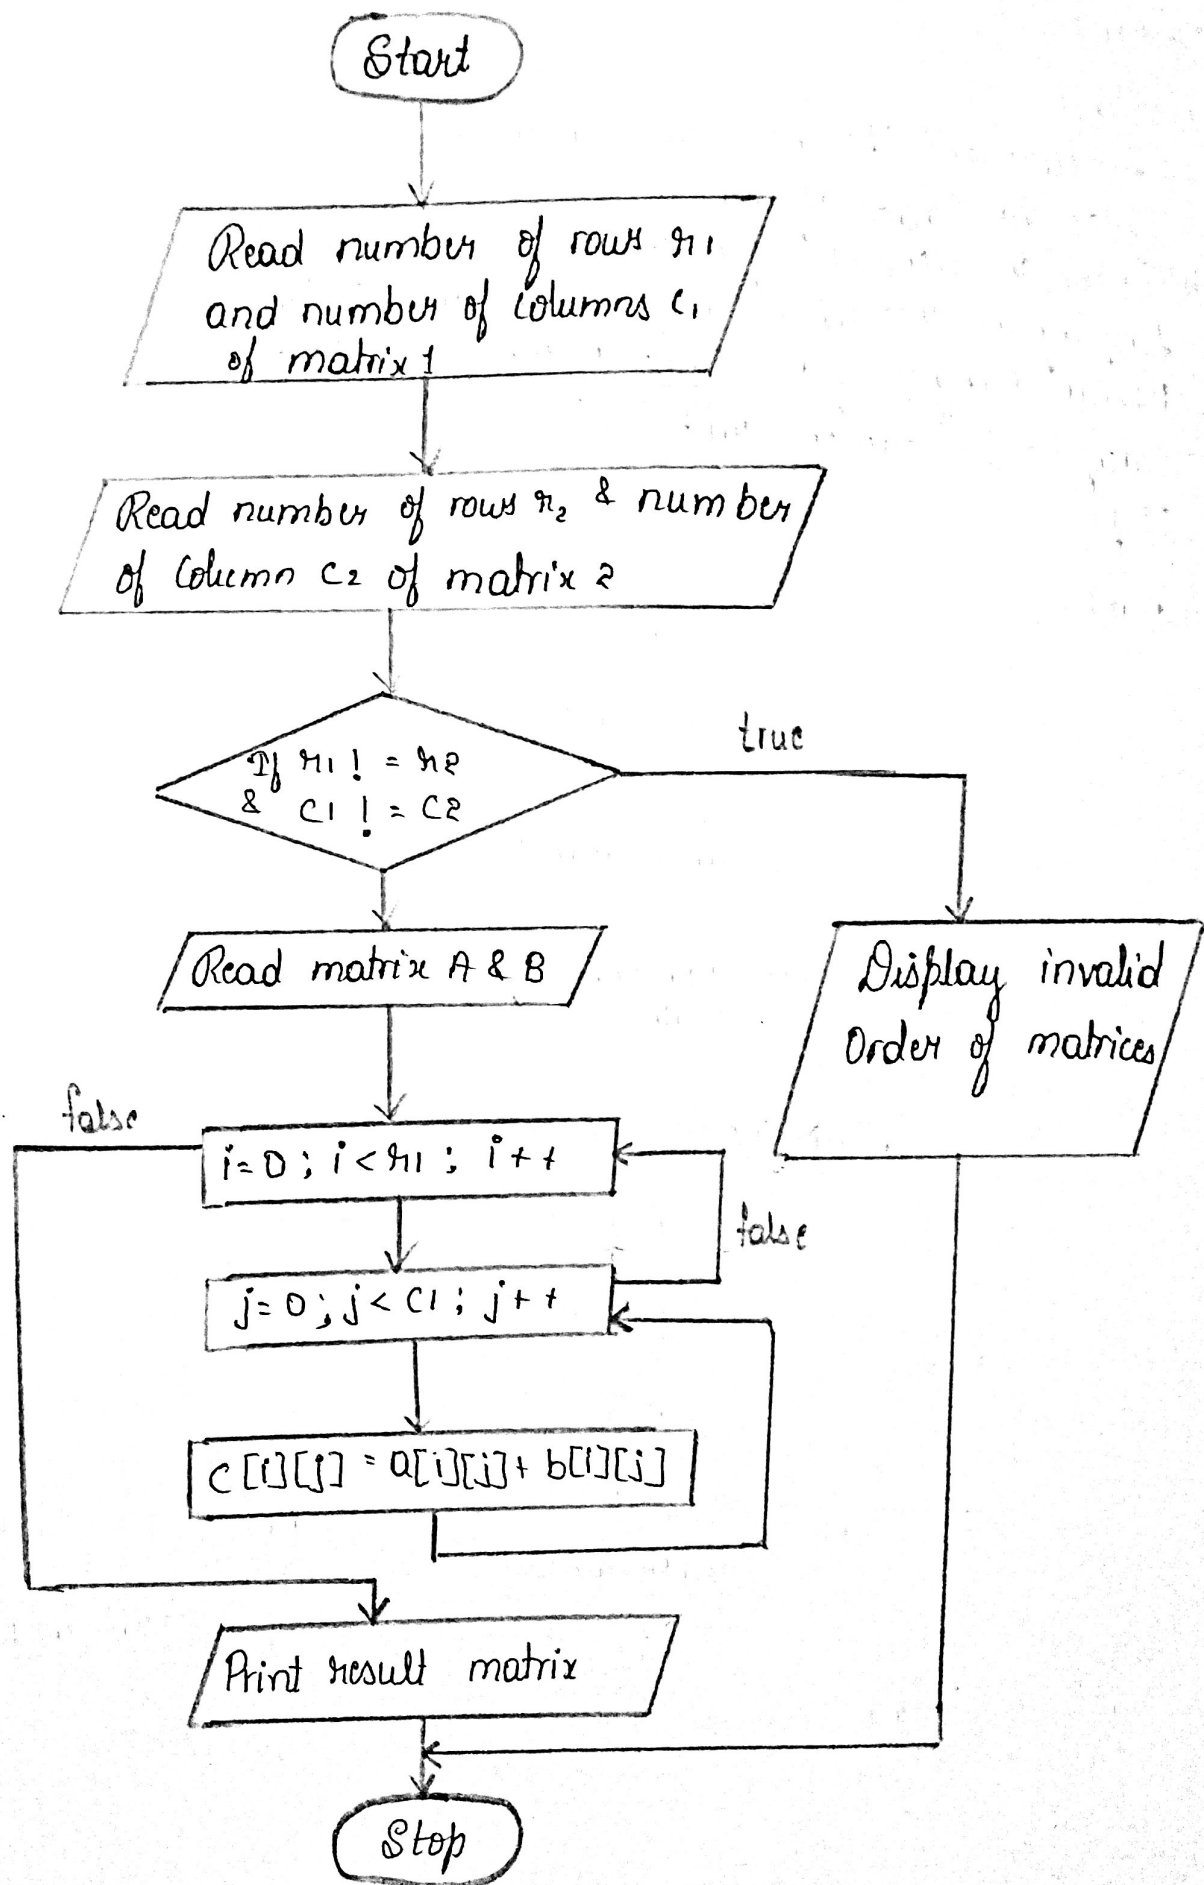 Start
Read number of rows r1
and number of columns c1
of matrix 1
Read number of rows r2 & number
of column c2 of matrix 2
true
If r1 ! = r2
& C1 ! = C2
Read matrix A & B
Display invalid
Order of matrices
false
i=0 ; i<r1 ; i++
false
j=0 ; j< C1 ; j++
C[i][j] = a[i][j]+ b[i][j]
Print result matrix
Stop